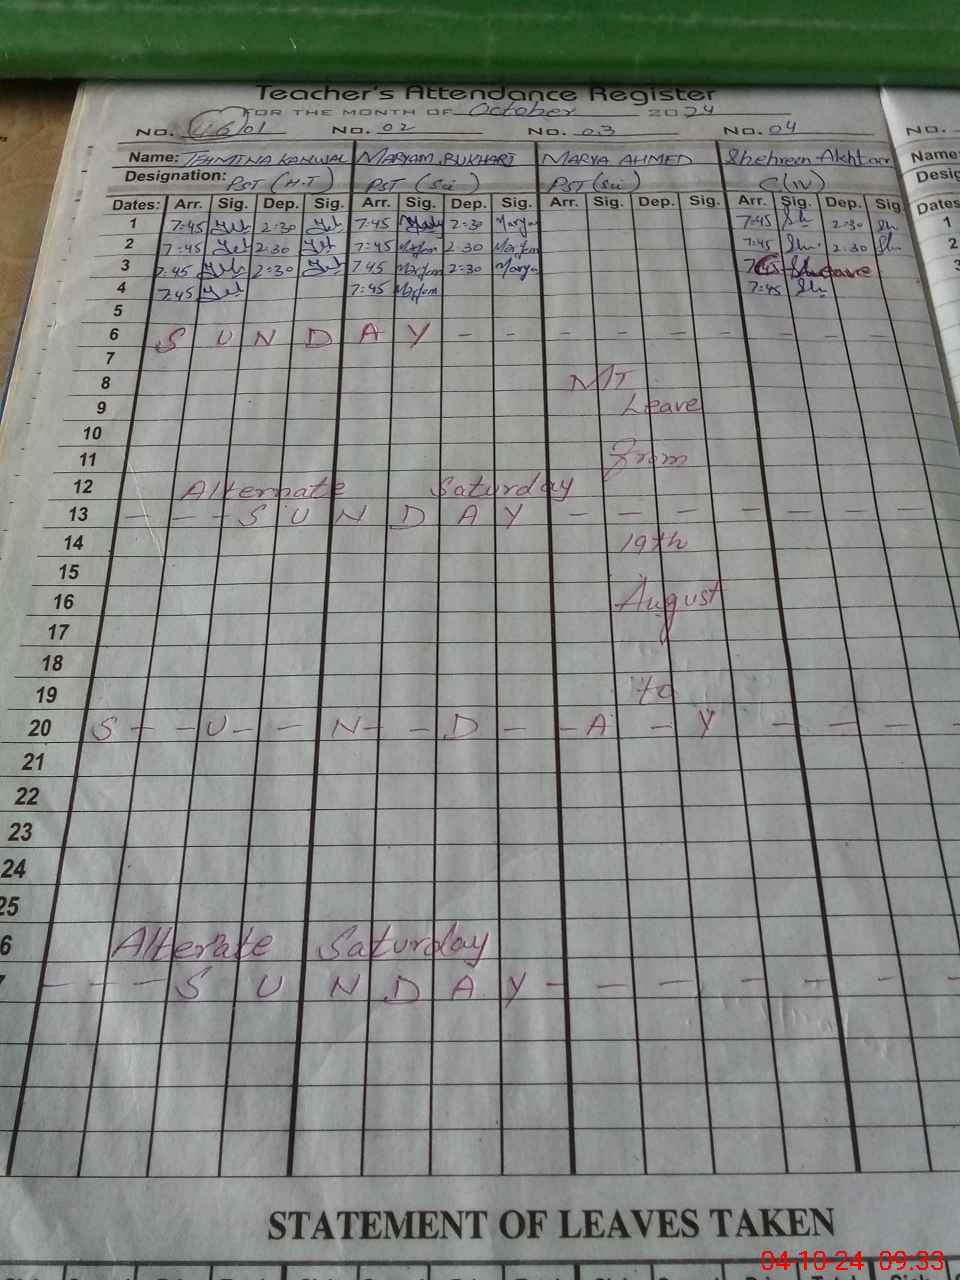 Teacher's Attendance Register
FOR THE MONTH OF October 2024
No. 01 No. 02 No. 03 No. 04 No.
Name: TEHMINA KANWAL MARYAM BUKHARI MARYA AHMED Shehreen Akhtar Name:
Designation: PST (H.T) PST (Sci) PST (Sci) C(IV) Desig
Dates: Arr. Sig. Dep. Sig. Arr. Sig. Dep. Sig. Arr. Sig. Dep. Sig. Arr. Sig. Dep. Sig. Dates
1 7:45 2:30 7:45 2:30 Marya 7:45 Sh 2:30 Sh 1
2 7:45 2:30 7:45 Maryam 2:30 Maryam 7:45 Sh. 2:30 Sh. 2
3 7:45 2:30 7:45 Maryam 2:30 Marya Leave 3
4 7:45 7:45 Maryam 7:45 Sh
5
6 S U N D A Y - - - - - - - - -
7
8 M/T
9 Leave
10
11 From
12 Alternate Saturday
13 - - - S U N D A Y - - - - - - -
14 19th
15
16 August
17
18
19 to
20 S - - U - - N - - D - - A - Y - - - -
21
22
23
24
25
6 Alterate Saturday
- - - S U N D A Y - - - - - - -
STATEMENT OF LEAVES TAKEN
04-10-24 09:33